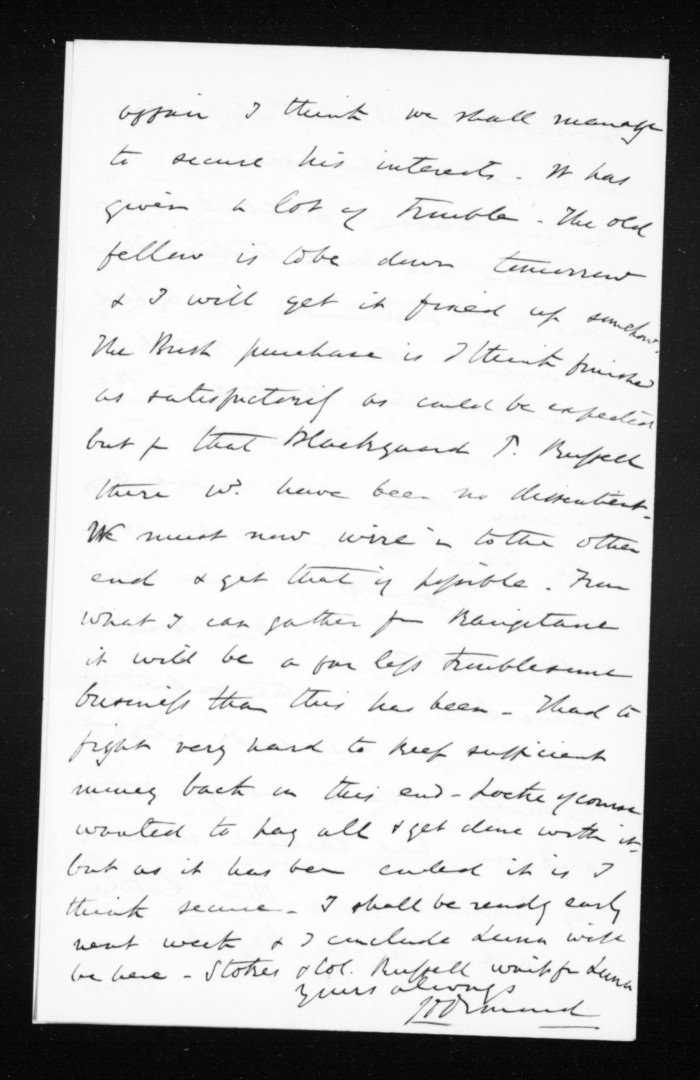 affair I think we shall manage
to secure his interests - It has
given a lot of trouble - The old
fellow is to be down tomorrow
& I will get it fixed up somehow.
The Bush purchase is I think finished
as satisfactorily as could be expected
but for that Blackguard T. Russell
there wd. have been no dissentient -
We must now wire in to the other
end & get that if possible. From
what I can gather from Rangitane
it will be a far less troublesome
business than this has been - I had to
fight very hard to keep sufficient
money back in this end - Locke of course
wanted to pay all & get done with it -
but as it has been ended it is I
think secure - I shall be ready early
next week & I conclude Luna will
be here - Stokes & Col. Russell wait for Luna
yours always
JD Ormond